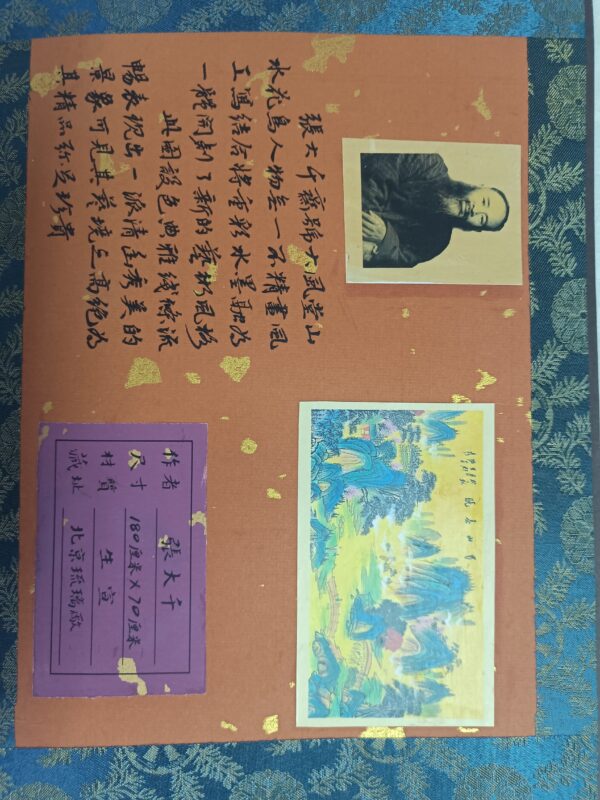 張大千齋號大風堂山
水花鳥人物無一不精畫風
工寫結合將重彩水墨融為
一體開創了新的藝術風格
此圖設色典雅綫條流
暢表現出一派清逸秀美的
景象可見其藝境之高絕為
其精品彌足珍貴
作者 張大千
尺寸 180厘米×70厘米
材質 生宣
藏址 北京琉璃廠